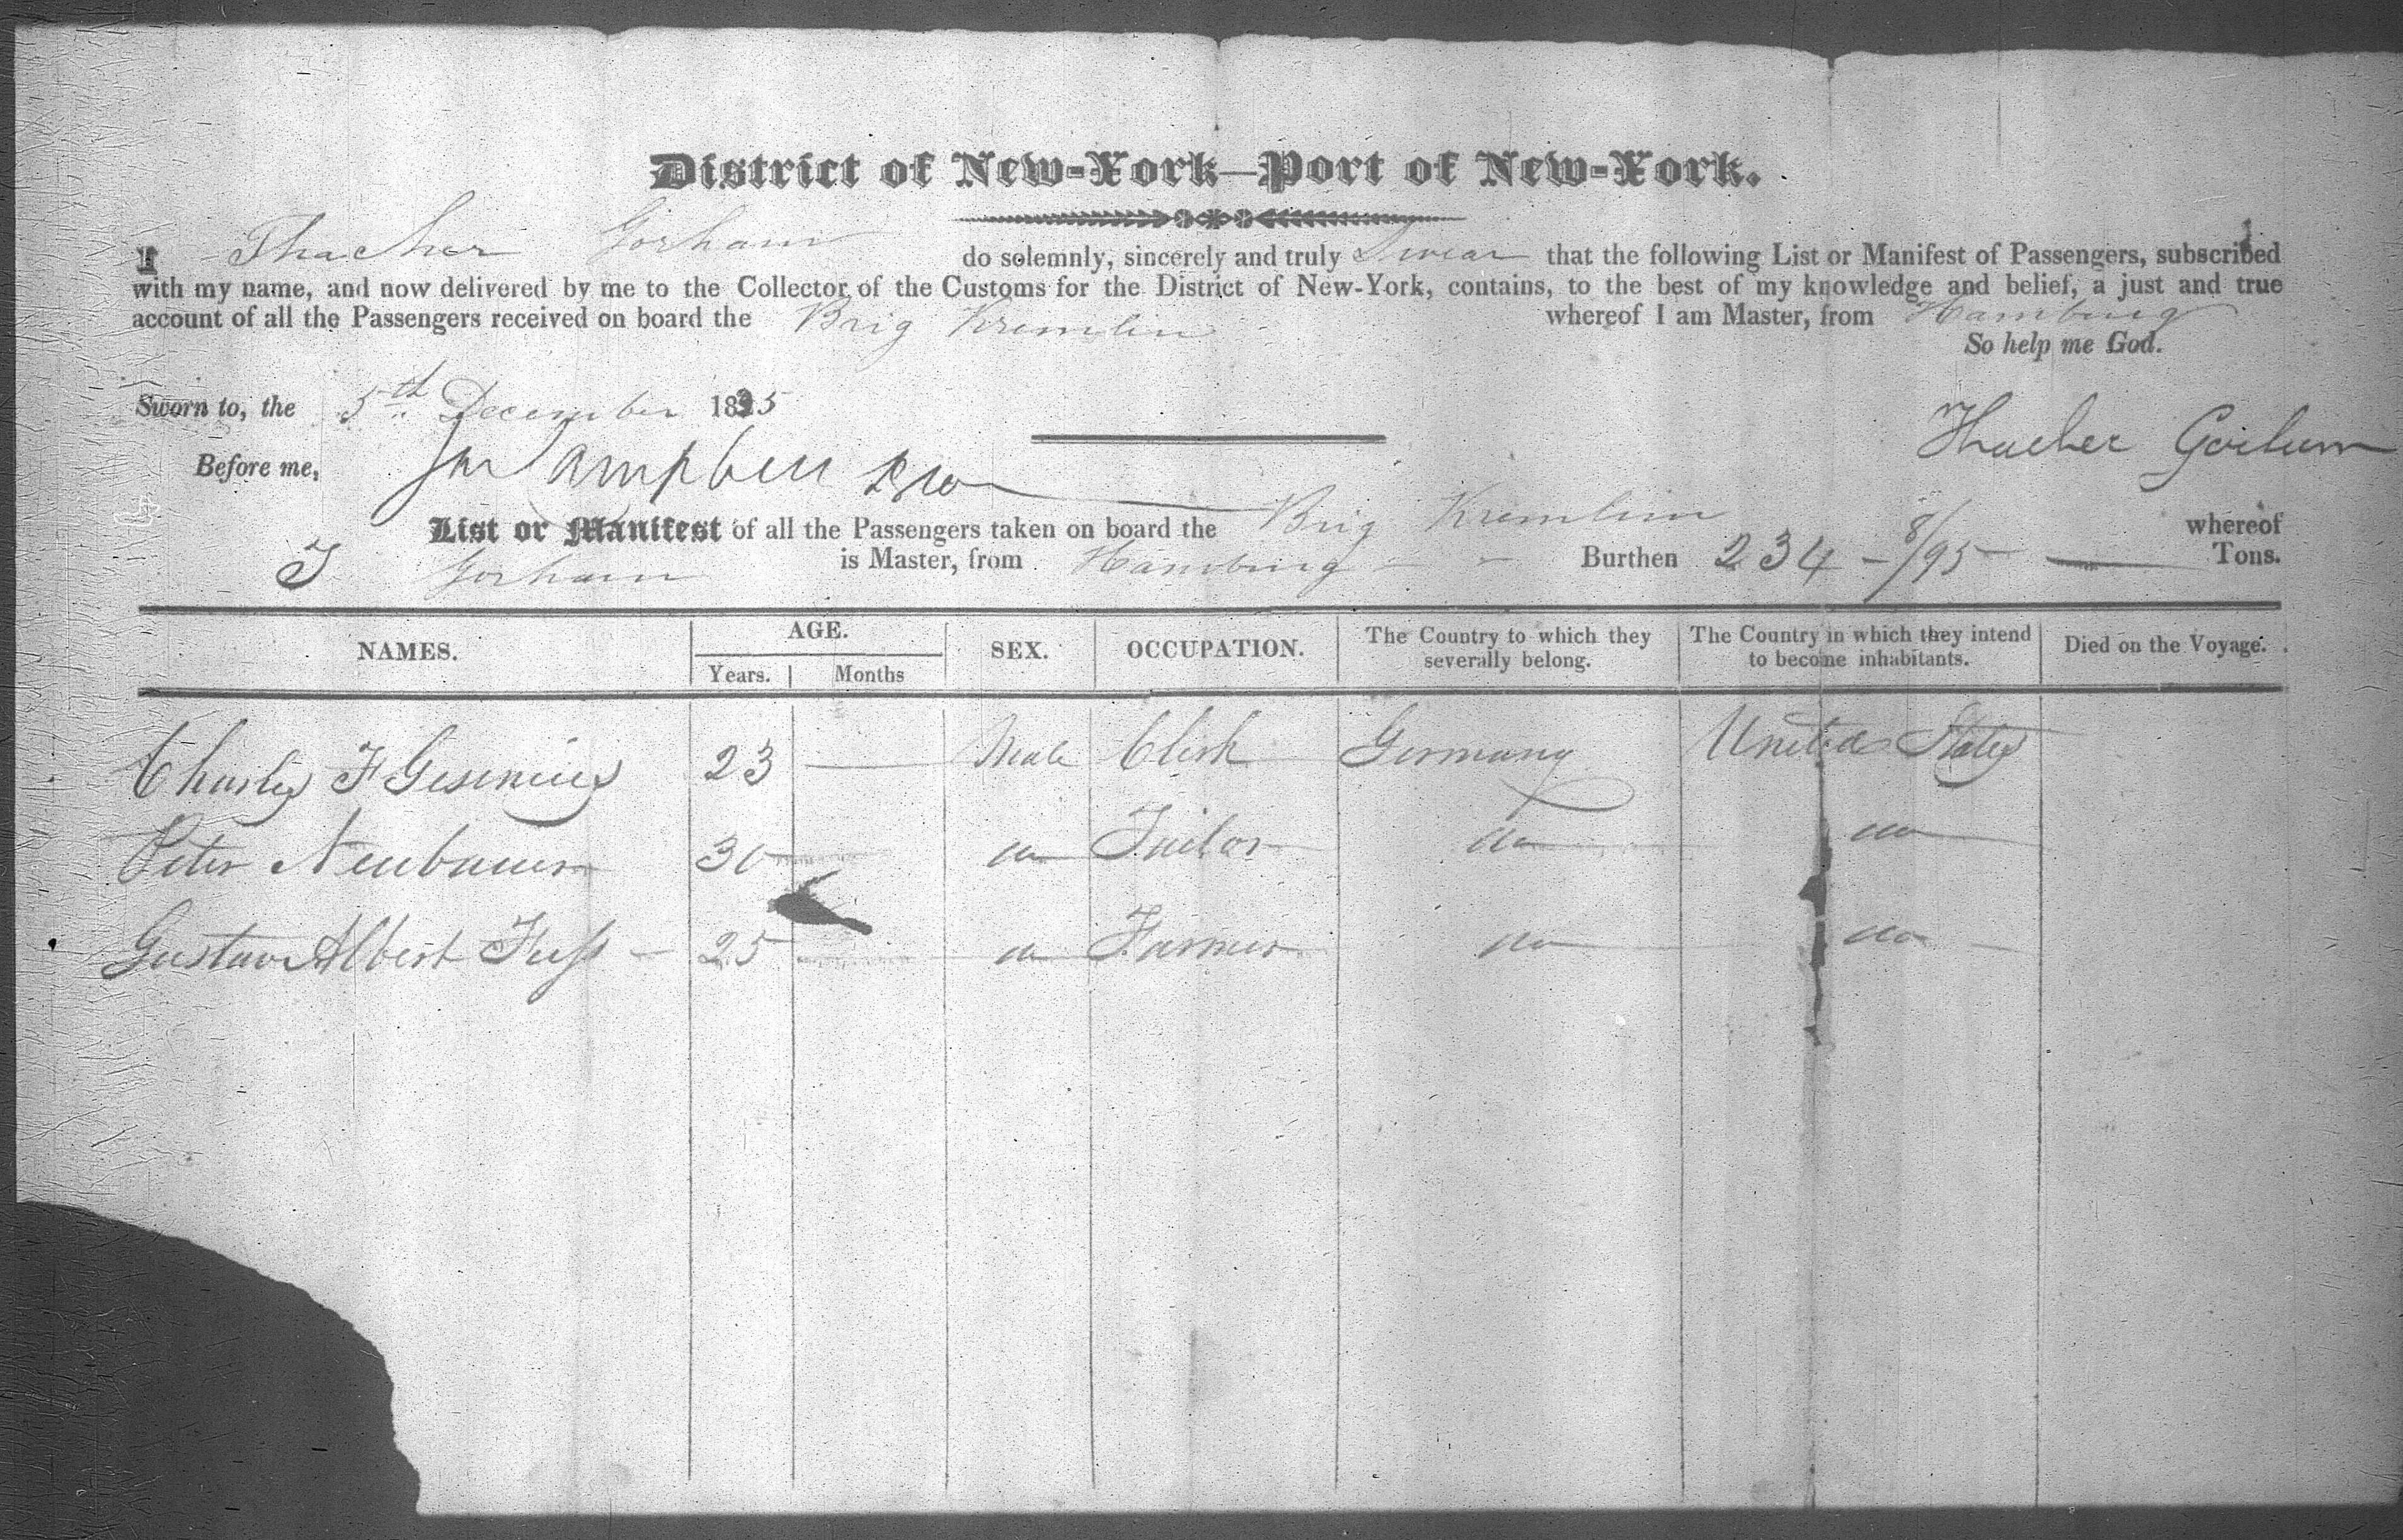 District of New-York—Port of New-York.
I Thacher Gorham do solemnly, sincerely and truly Swear that the following List or Manifest of Passengers, subscribed
with my name, and now delivered by me to the Collector of the Customs for the District of New-York, contains, to the best of my knowledge and belief, a just and true
account of all the Passengers received on board the Brig Kremlin whereof I am Master, from Hamburg
So help me God.
Sworn to, the 5th December 1835
Thacher Gorham
Before me, Campbell
List or Manifest of all the Passengers taken on board the Brig Kremlin whereof
T Gorham is Master, from Hamburg Burthen 234 - 8/95 Tons.
NAMES. AGE. SEX. OCCUPATION. The Country to which they severally belong. The Country in which they intend to become inhabitants. Died on the Voyage.
Years. Months
Charles F Gesenius 23 Male Clerk Germany United States
Peter Neubauer 30 do Tailor do do
Gustav Albert 25 do Farmer do do